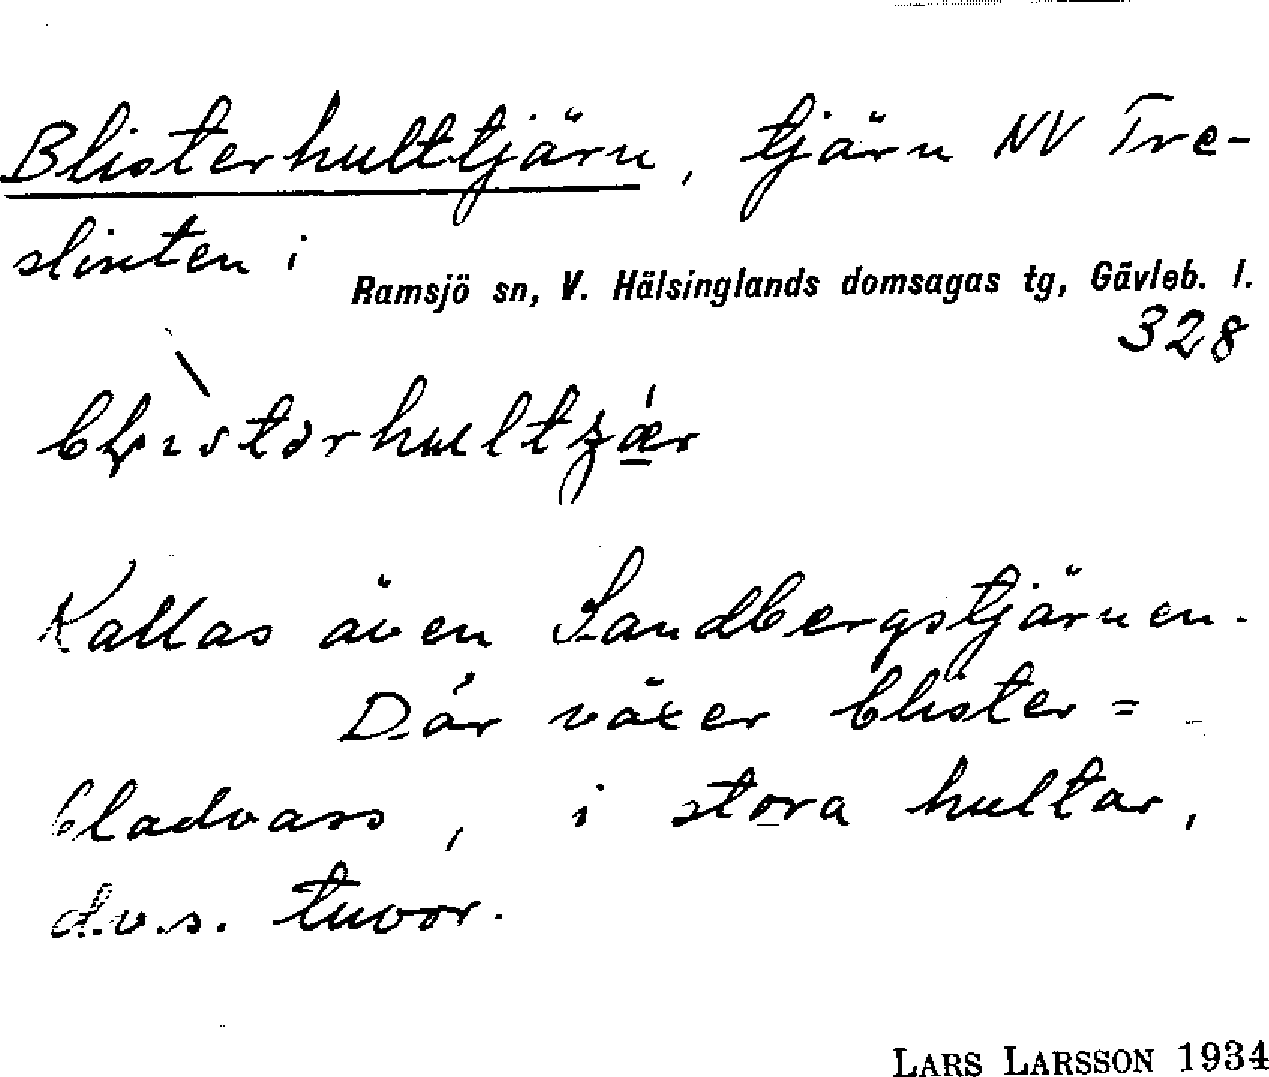 Blisterhulttjärn, tjärn NV Tre-
slinten i
Ramsjö sn, V. Hälsinglands domsagas tg, Gävleb. l.
328
Kallas även Sandbergstjärnen.
Där växer blister =
bladvass, i stora hultar,
d.v.s. tuvor.
LARS LARSSON 1934